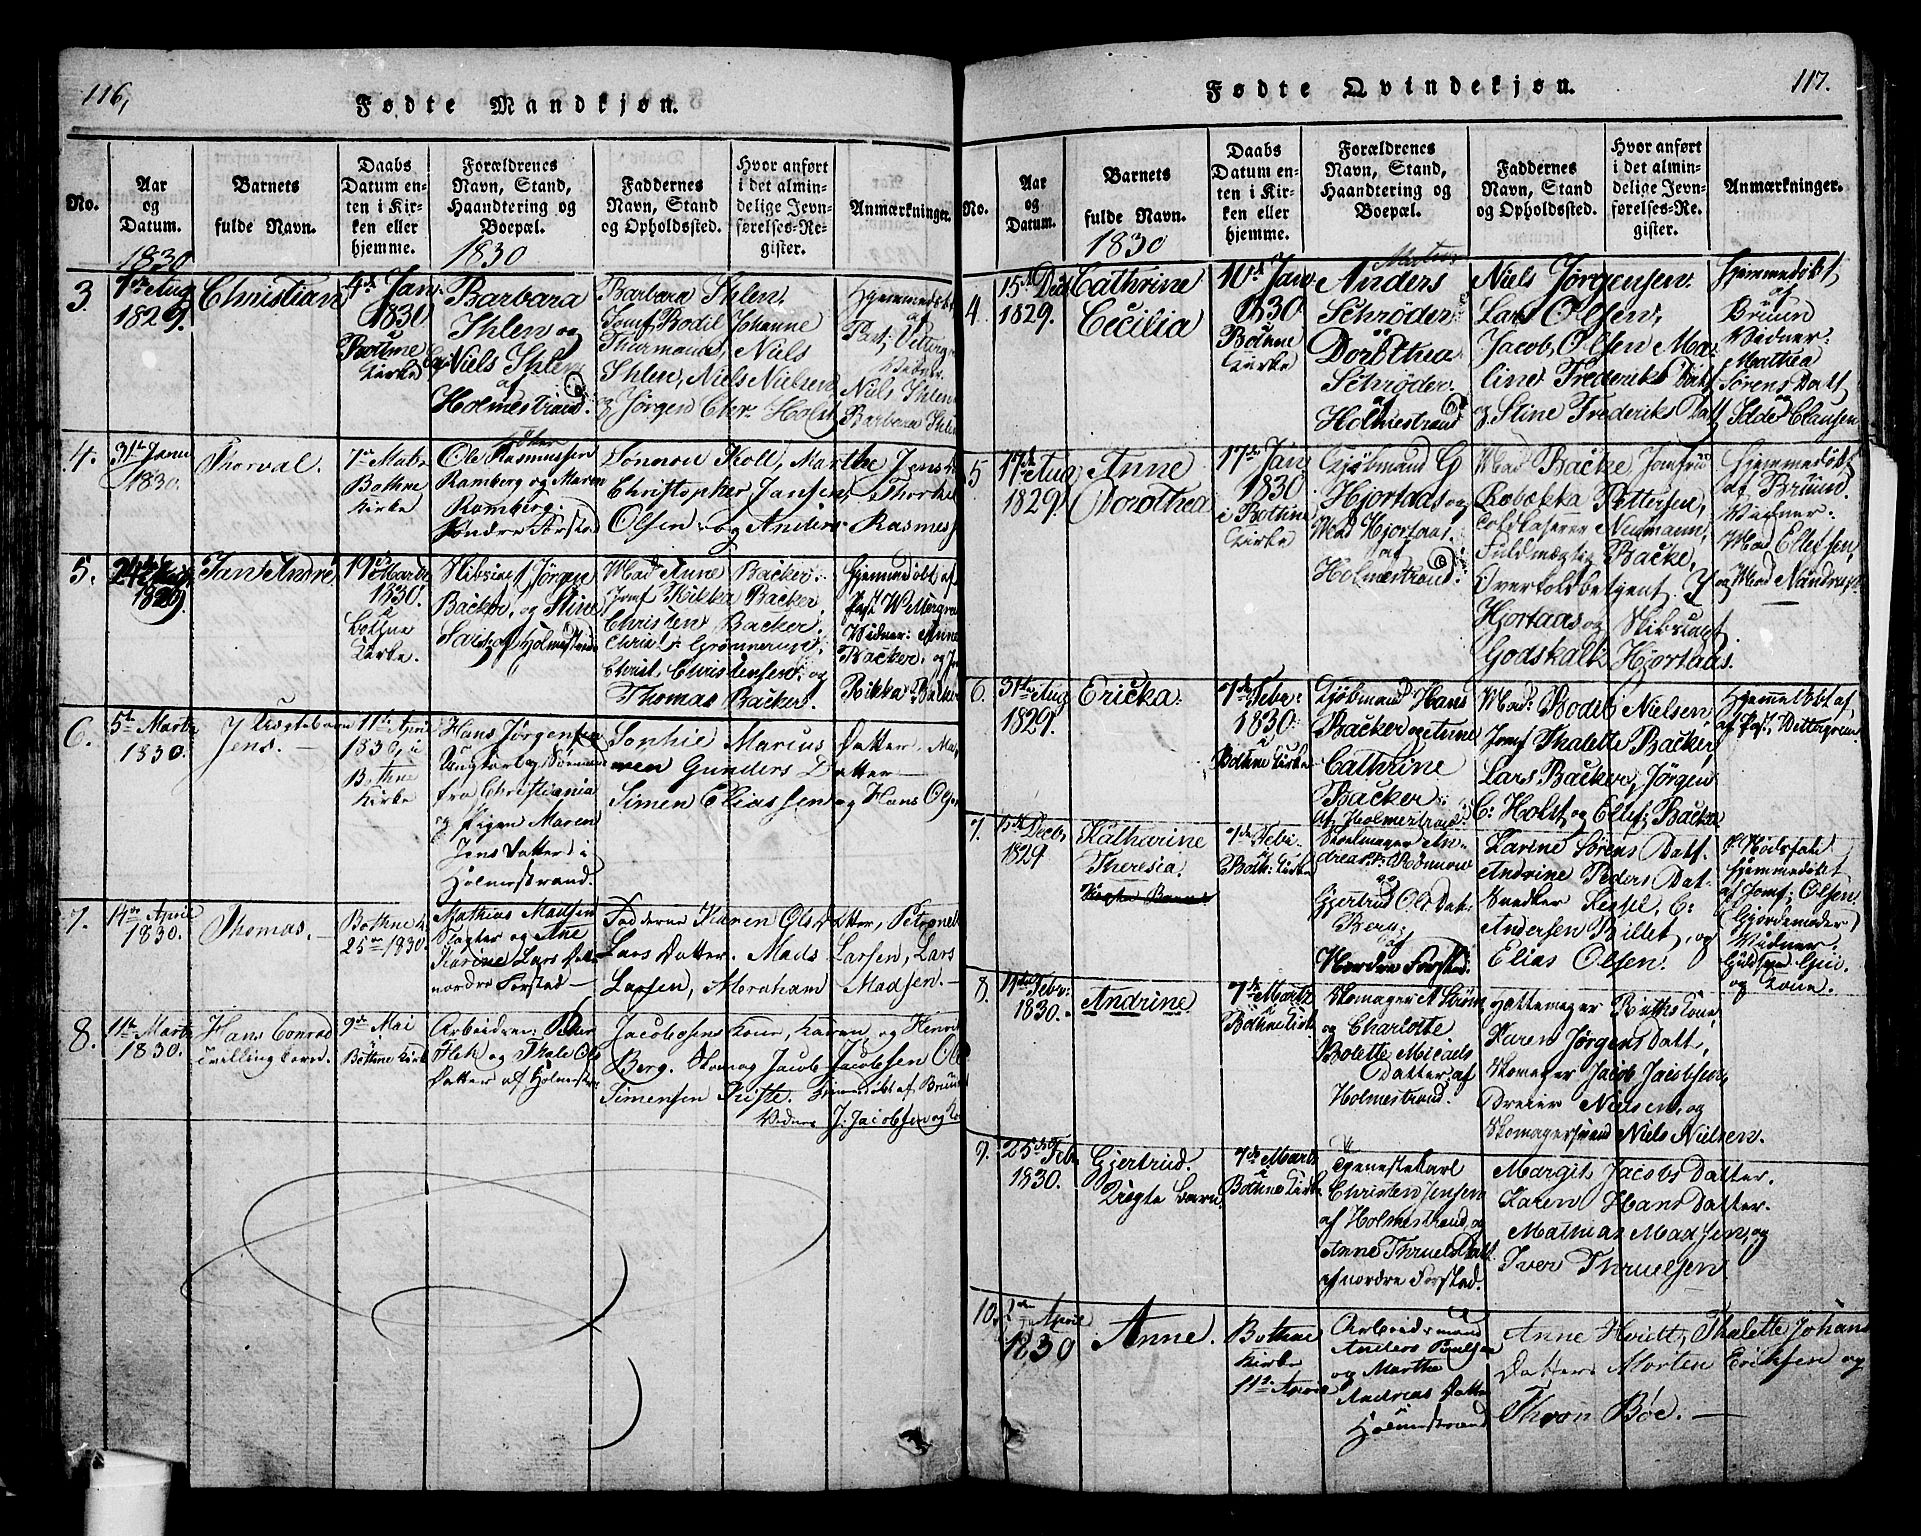 116,
Fødte Mandkjøn.
No.
Aar og Datum.
Barnets fulde Navn.
Daabs Datum enten i Kirken eller hjemme.
Forældrenes Navn, Stand, Haandtering og Boepæl.
Faddernes Navn, Stand og Opholdssted.
Hvor anført i det almindelige Jevnførelses-Register.
Anmærkninger.
1830
1830
3.
1829.
Christian
4de Jan
1830
Bottne
Kirke
Barbara
Ihlen og
Niels Ihlen
af
Holmestrand.
Barbara Ihlen
Jomf. Bodil Johanne
Thurmann, Niels
Ihlen, Niels Nielsen
og Jørgen Chr. Holst
Hjemmedøbt
af
Past. Vettergr
Vidner
Niels Ihlen
Barbara Ihlen
4.
31te Janu
1830.
Thorval.
7de Marts
Bottne
Kirke
Ole Rasmussen
Ramberg og Maren
Ramberg.
Søndre Forstad
Lønnou Koll, Marthe Jens
Christopher Jansen, Thorkel
Olsen og Anders Rasmuss
5.
1829.
Jan André
19de Marts
1830.
Bottne
Kirke.
Skibsing Jørgen
Backer, og Stine
af Holmestrand
Mad Anne Backer
Jomf Rikke Backer
Christen Backer
Christ. Christensen og
Thomas Backer.
Hjemmedøbt af
Past Wettergren
Vidner: Anne
Backer og Jo
Rikka Backer
6.
5te Marts
1830.
Uægtebarn
Jens.
11te April
1830, i
Bottne
Kirke
Hans Jørgensen
Ungkarl og Sømand
fra Christiania
og Pigen Maren
Jens Datter i
Holmestrand.
Sophie Marcus Datter, Ma
ren Gunders Datter
Simen Eliassen og Hans Ols
7.
14de April
1830.
Thomas.
Bothne K.
25de 1830.
Mathias Madsen
Slagter og Ane
Karine Lars Datt
nordre Forstad
Fadderne Karen Ols Datter, Petronel
Lars Datter. Mads Larsen, Lars
Larsen, Abraham Madsen.
8.
11te Marts
1830.
Hans Conrad
tvilling barn.
9de Mai
Bottne Kirke
Arbeidsm. Peder
Flek og Thale Ols
Datter af Holmestr.
Jacobsens Kone, Karen og Henri
Berg. Skomag Jacob Jacobsen Ole
Simensen Hjemmedøbt af Bruun
Vidner J. Jacobsen og Ko
117.
Fødte Qvindekjøn.
No.
Aar og Datum.
Barnets fulde Navn.
Daabs Datum enten i Kirken eller hjemme.
Forældrenes Navn, Stand, Haandtering og Boepæl.
Faddernes Navn, Stand og Opholdssted.
Hvor anført i det almindelige Jevnførelses-Register.
Anmærkninger.
1830
4.
15de Dec
1829.
Cathrine
Cecilia
10de Jan
1830
Bottne
Kirke
Anders
Schrøder
Dorothea
Schrøder
af
Holmestrand
Niels Jørgensen.
Lars Olsen,
Jacob Olsen Ma-
line Frederiks Datt
og Stine Frederiks Datt
Hjemmedøbt
af
Bruun
Vidner
Mathea
Sørens Datt
og
Clausen
5
17de Aug
1829.
Anne
Dorothea
17de Jan
1830
i Bottne
Kirke
Kjøbmand G
Hjortaas og
Mad Hjortaas.
af
Holmestrand.
Mad Backe Jomfru
Rebekka Pettersen,
Toldkaserer Neumann,
Fuldmægtig Backe,
Overtoldbetjent
Hjortaas og Skibscapt
Godskalk Hjortaas.
Hjemmedøbt
af Bruun.
Vidner:
Mad Ellefsen,
og Mad Nandrup
6.
31te Aug
1829.
Ericka.
7de Febr.
1830.
i
Bothne Kirke
Kjøbmand Hans
Backer og Anne
Cathrine
Backer
af Holmestrand.
Mad: Bodil Nielsen,
Jomf Thalette Backer,
Lars Backer, Jørgen
C: Holst, og Ellef: Backer
Hjemmedøbt af
af Past. Wettergreen
7.
15de Decb.
1829
Katharine
Theresia
7de Febr.
Both: Kirke
dreas
og
Gjertrud Ols Dat.
Berg
af
Nordre Forstad.
Karine Sørens Datt.
Andrine Peders Dat.
Snedker C:
Andersen Billet, og
Elias Olsen.
Hjemmedøbt
af Jomf. Olsen
Gjordemoder
Vidner.
og Kone.
8.
Febr.
1830.
Andrine
7de Marts
i
Bothne Kirke
Skomager A Strøm
og Charlotte
Bolette Micaels
Datter af
Holmestrand.
Kone,
Karen Jørgens Datt,
Skomager Jacob Jacobsen,
Dreier Nielsen, og
Skomagersvend Niels Nielsen.
9.
25de Feb
1830.
Gjertrud.
Uægte barn.
7de Marts
i
Bothne Kirke
Tjenestekarl
Christen Jensen
af Holmestrand, og
Anne Thruels Datt.
af nordre Forstad.
Margit Jacobs Datter.
Karen Hans Datter.
Mathias Madsen, og
Iver Thruelsen
10.
April
1830
Anne.
Bothne
Kirke
11te April
Arbeidsmand
Anders Poulsen
og Marthe
Andreas Datter
Holmestrand
Anne Hvidt, Thalette Johans
Datter Morten Eriksen og
Thron Bøe.